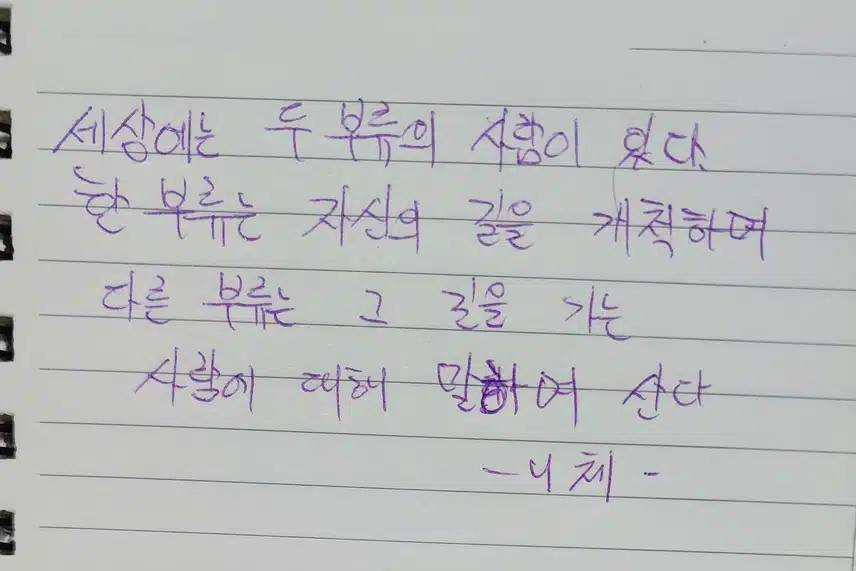 세상에는 두 부류의 사람이 있다.
한 부류는 자신의 길을 개척하며
다른 부류는 그 길을 가는
사람에 대해 말하며 산다
- 니체 -